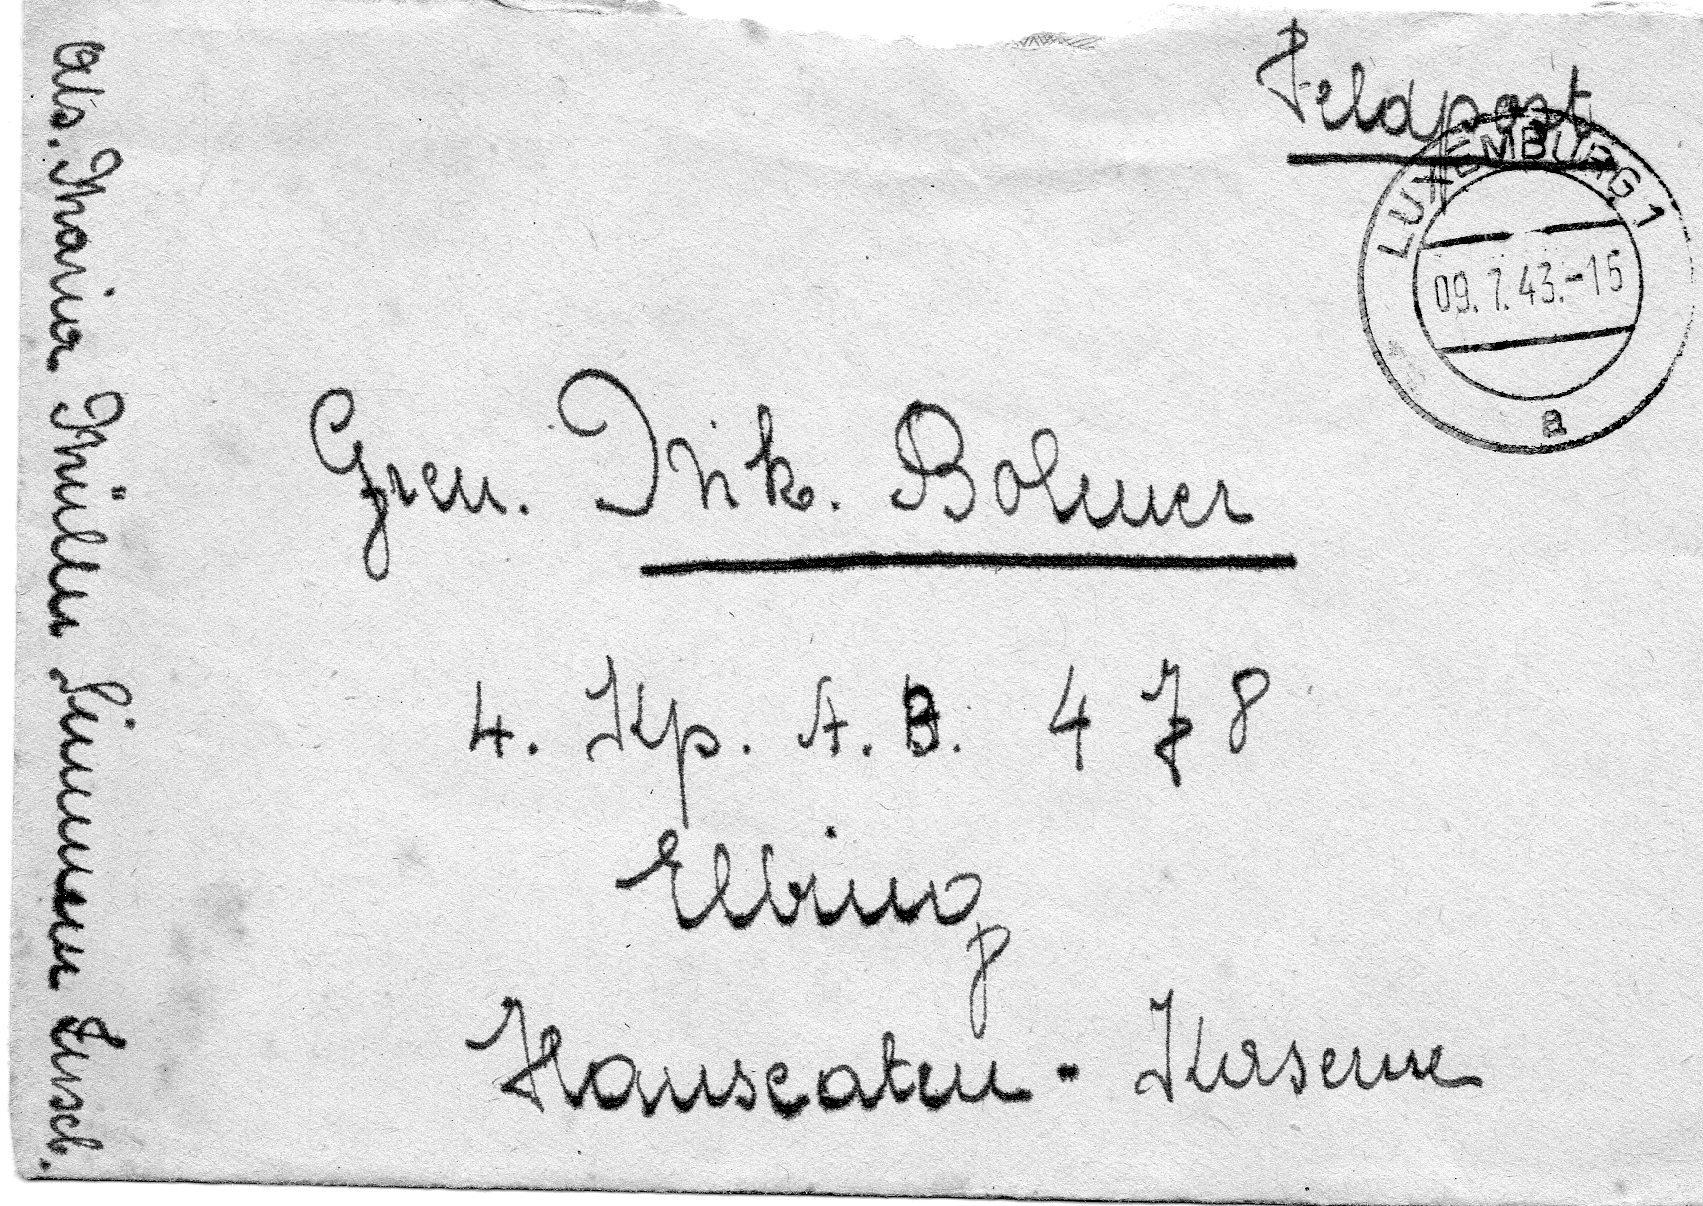 Feldpost
LUXEMBURG 1
09.7.43.-16
a
Gren. Nik. Bolmer
4. Kp. A. B. 478
Elbing
Hanseaten-Kaserne
Abs. Maria Müller Simmern Lusch.